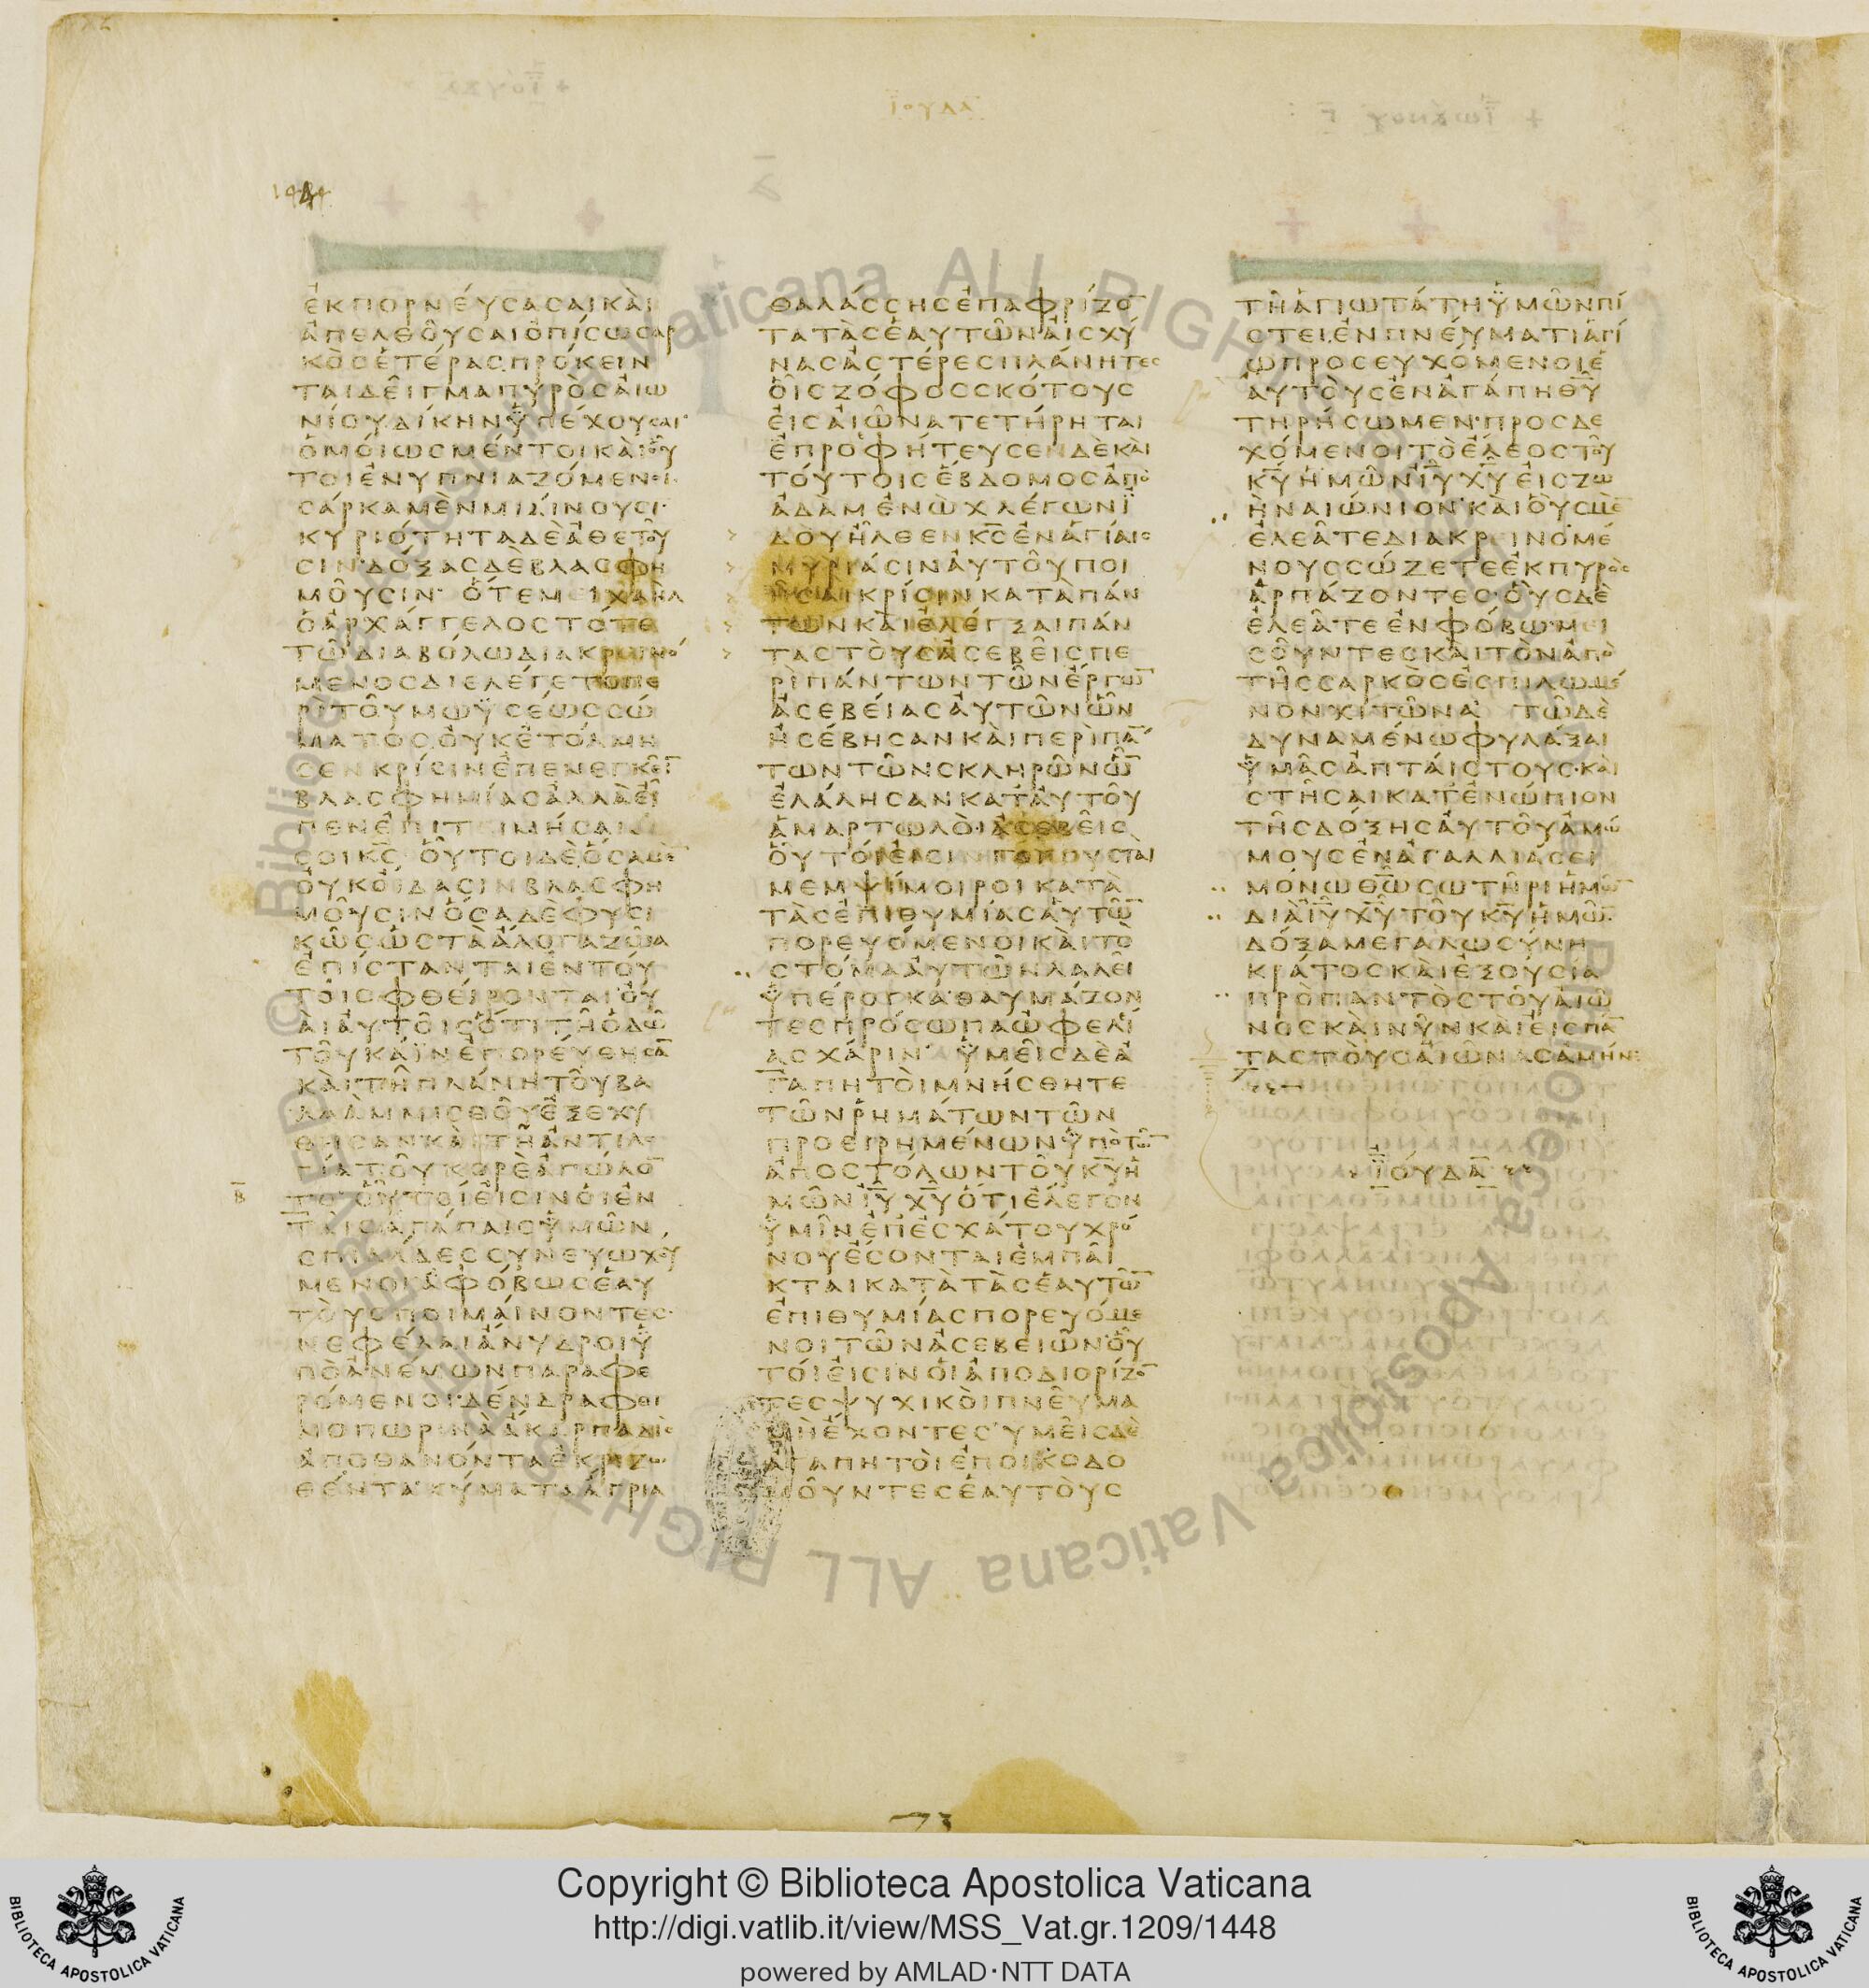 ΙΟΥΔΑ
ἐκπορνεύσασαι καὶ
ἀπελθοῦσαι ὀπίσω σαρ
κὸς ἑτέρας πρόκειν
ται δεῖγμα πυρὸς αἰω
νίου δίκην ὑπέχουσαι·
ὁμοίως μέντοι καὶ οὗ
τοι ἐνυπνιαζόμενοι
σάρκα μὲν μιαίνουσι·
κυριότητα δὲ ἀθετοῦ
σιν· δόξας δὲ βλασφη
μοῦσιν· ὅτε μειχαὴλ
ὁ ἀρχάγγελος τότε
τῷ διαβόλῳ διακρεινό
μενος διελέγετο πε
ρὶ τοῦ μωϋσέως σώ
ματος οὐκ ἐτόλμη
σεν κρίσιν ἐπενεγκεῖ̅
βλασφημίας ἀλλὰ εἶ
πεν ἐπιτειμήσαι
σοι κ̅ς̅ οὗτοι δὲ ὅσα μὲ̅
οὐκ οἴδασιν βλασφη
μοῦσιν ὅσα δὲ φυσι
κῶς ὡς τὰ ἄλογα ζῶα
ἐπίστανται ἐν τού
τοις φθείρονται· οὐ
αὶ αὐτοῖς ὅτι τῇ ὁδῷ
τοῦ κάϊν ἐπορεύθησα̅
καὶ τῇ πλάνῃ τοῦ βα
λαὰμ μισθοῦ ἐξεχύ
θησαν καὶ τῇ ἀντιλο
γίᾳ τοῦ κορὲ ἀπώλο̅
το· οὗτοί εἰσιν οἱ ἐν
ταῖς ἀγάπαις ὑμῶν
σπιλάδες συνευωχού
μενοι ἀφόβως ἑαυ
τοὺς ποιμαίνοντες·
νεφέλαι ἄνυδροι ὑ
πὸ ἀνέμων παραφε
ρόμενοι· δένδρα φθι
νοπωρινὰ ἄκαρπα δὶς
ἀποθανόντα ἐκριζω
θέντα· κύματα ἄγρια
θαλάσσης ἐπαφρίζο̅
τα τὰς ἑαυτῶν αἰσχύ
νας ἀστέρες πλάνητες
οἷς ζόφος σκότους
εἰς αἰῶνα τετήρηται
ἐπροφήτευσεν δὲ καὶ
τούτοις ἕβδομος ἀπὸ
ἀδὰμ ἑνὼχ λέγων ἰ
δοὺ ἦλθεν κ̅ς̅ ἐν ἁγίαις
μυριάσιν αὐτοῦ ποι
ῆσαι κρίσιν κατὰ πάν
των καὶ ἐλέγξαι πάν
τας τοὺς ἀσεβεῖς πε
ρὶ πάντων τῶν ἔργω̅
ἀσεβείας αὐτῶν ὧν
ἠσέβησαν καὶ περὶ πά̅
των τῶν σκληρῶν ὧ̅
ἐλάλησαν κατ αὐτοῦ
ἁμαρτωλοὶ ἀσεβεῖς
οὗτοί εἰσιν γογγυσταὶ
μεμψίμοιροι κατὰ
τὰς ἐπιθυμίας αὐτῶ̅
πορευόμενοι καὶ τὸ
στόμα αὐτῶν λαλεῖ
ὑπέρογκα· θαυμάζον
τες πρόσωπα ὠφελεί
ας χάριν· ὑμεῖς δὲ ἀ
γαπητοὶ μνήσθητε
τῶν ῥημάτων τῶν
προειρημένων ὑπὸ τῶ̅
ἀποστόλων τοῦ κ̅υ̅ ἡ
μῶν ι̅υ̅ χ̅υ̅ ὅτι ἔλεγον
ὑμῖν ἐπ ἐσχάτου χρό
νου ἔσονται ἐμπαῖ
κται κατὰ τὰς ἑαυτῶ̅
ἐπιθυμίας πορευόμε
νοι τῶν ἀσεβειῶν· οὗ
τοί εἰσιν οἱ ἀποδιορίζο̅
τες ψυχικοὶ πνεῦμα
μὴ ἔχοντες· ὑμεῖς δὲ
ἀγαπητοὶ ἐποικοδο
μοῦντες ἑαυτοὺς
τῇ ἁγιωτάτῃ ὑμῶν πί
στει ἐν πνεύματι ἁγί
ῳ προσευχόμενοι ἑ
αυτοὺς ἐν ἀγάπῃ θ̅υ̅
τηρήσωμεν· προσδε
χόμενοι τὸ ἔλεος τοῦ
κ̅υ̅ ἡμῶν ι̅υ̅ χ̅υ̅ εἰς ζω
ὴν αἰώνιον· καὶ οὓς μὲ̅
ἐλεᾶτε διακρεινομέ
νους σώζετε ἐκ πυρὸς
ἁρπάζοντες· οὓς δὲ
ἐλεᾶτε ἐν φόβῳ· μει
σοῦντες καὶ τὸν ἀπὸ
τῆς σαρκὸς ἐσπιλωμέ
νον χιτῶνα· τῷ δὲ
δυναμένῳ φυλάξαι
ὑμᾶς ἀπταίστους· καὶ
στῆσαι κατενώπιον
τῆς δόξης αὐτοῦ ἀμώ
μους ἐν ἀγαλλιάσει
μόνῳ θ̅ω̅ σωτῆρι ἡμῶ̅
διὰ ι̅υ̅ χ̅υ̅ τοῦ κ̅υ̅ ἡμῶ̅·
δόξα μεγαλωσύνη
κράτος καὶ ἐξουσία
πρὸ παντὸς τοῦ αἰῶ
νος καὶ νῦν καὶ εἰς πά̅
τας τοὺς αἰῶνας ἀμήν:
ἰούδα
Copyright © Biblioteca Apostolica Vaticana
http://digi.vatlib.it/view/MSS_Vat.gr.1209/1448
powered by AMLAD·NTT DATA
BIBLIOTECA APOSTOLICA VATICANA
BIBLIOTECA APOSTOLICA VATICANA